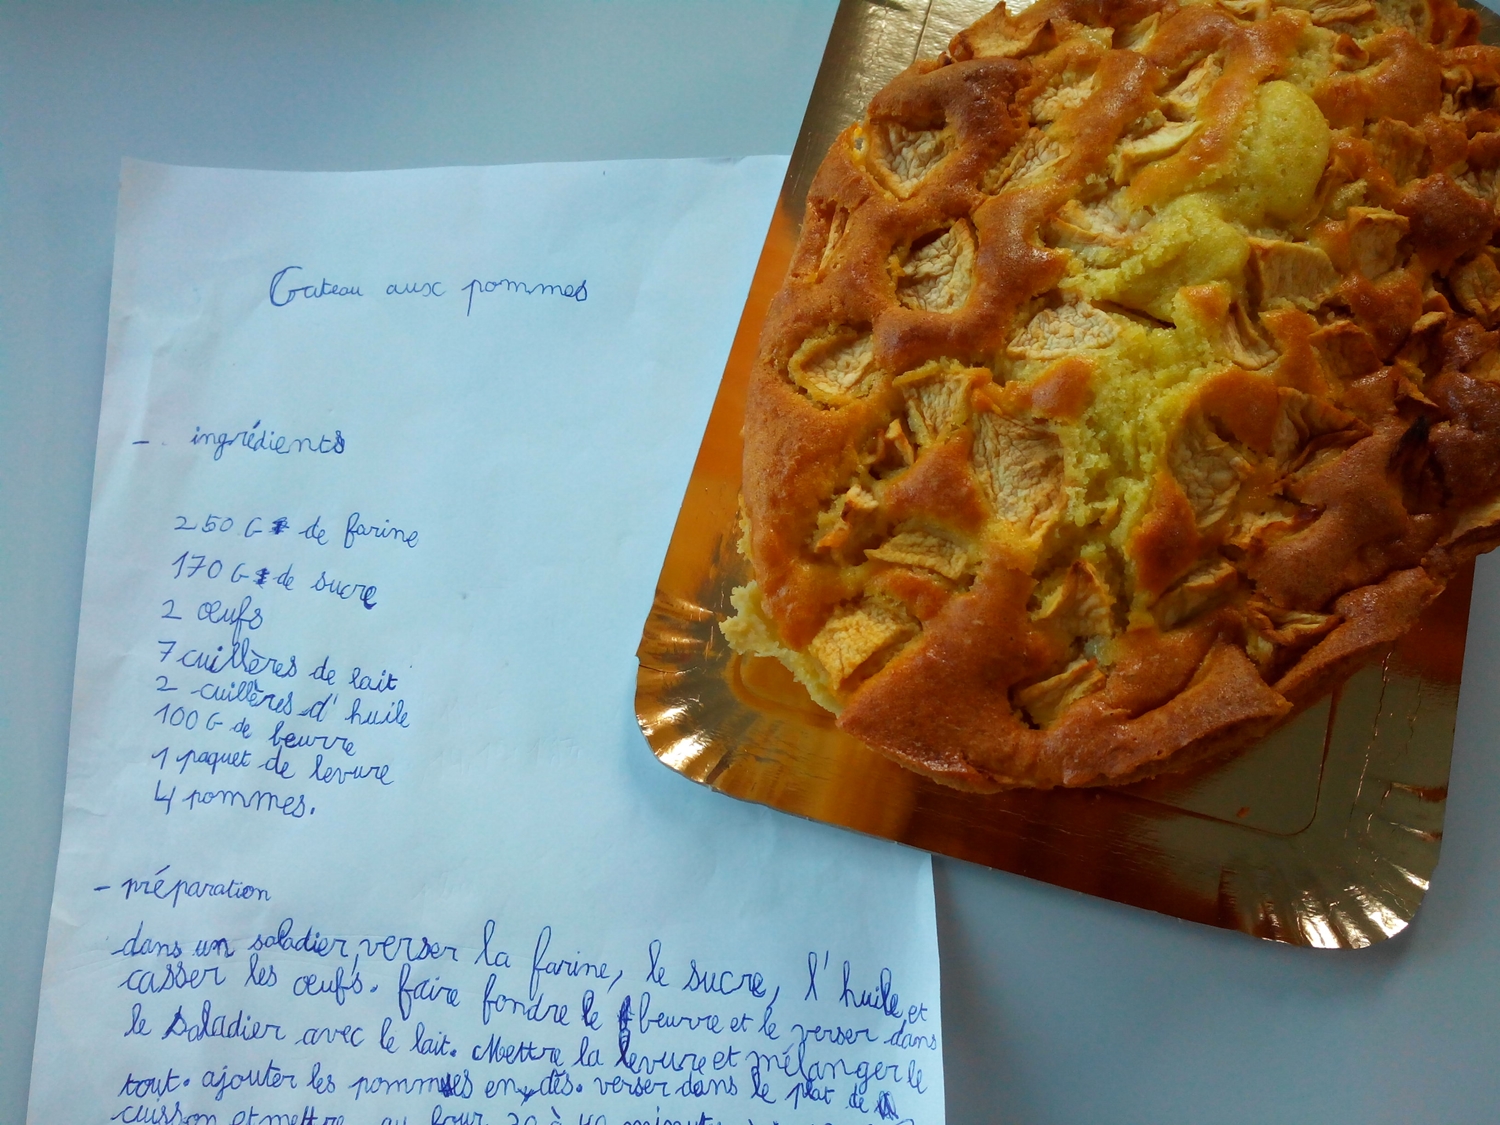 Gateau aux pommes
- ingrédients
250 G de farine
170 G de sucre
2 œufs
7 cuillères de lait
2 cuillères d'huile
100 G de beurre
1 paquet de levure
4 pommes.
- préparation
dans un saladier, verser la farine, le sucre, l'huile et
casser les œufs. faire fondre le beurre et le verser dans
le saladier avec le lait. Mettre la levure et mélanger le
tout. ajouter les pommes en dés. verser dans le plat de
cuisson et mettre au four 30 à 40 minutes